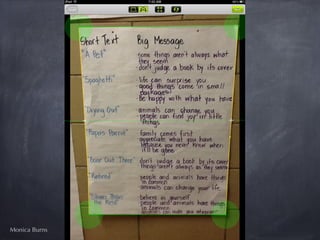 Short Text Big Message
"A Bell" · some things aren't always what
they seem
· don't judge a book by its cover
"Spaghetti" · Life can surprise you
· good things come in small
packages!
· Be happy with what you have
"Drying Out" · animals can change you
· people can find joy in little
things
"Papa's Parrot" · family comes first
· appreciate what you have
because you never know when
it'll be gone
"Boar Out There" · don't judge a book by its cover/
things aren't always as they seem
"Retired" · people and animals have things
in common
· animals can change your life.
· believe in yourself
· people and animals have things
in common
Monica Burns